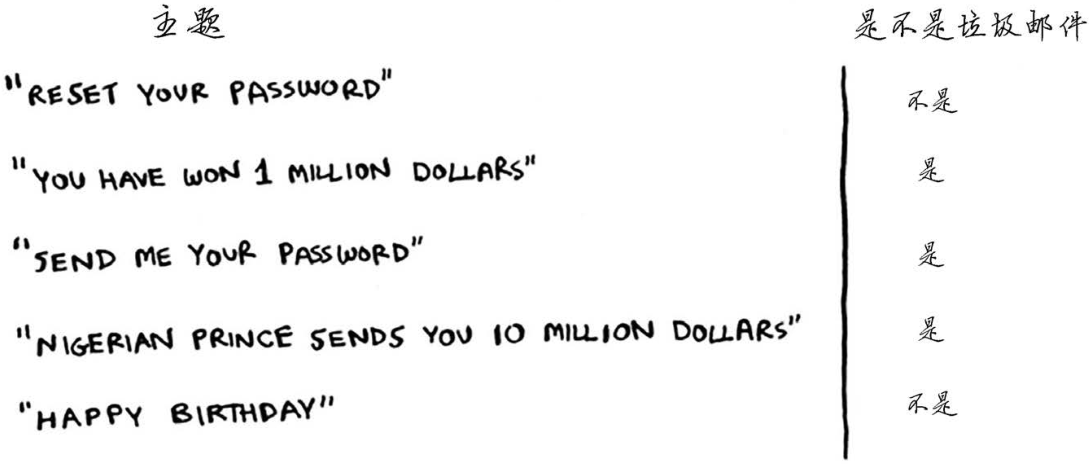 主题 是不是垃圾邮件
"RESET YOUR PASSWORD" 不是
"YOU HAVE WON 1 MILLION DOLLARS" 是
"SEND ME YOUR PASSWORD" 是
"NIGERIAN PRINCE SENDS YOU 10 MILLION DOLLARS" 是
"HAPPY BIRTHDAY" 不是